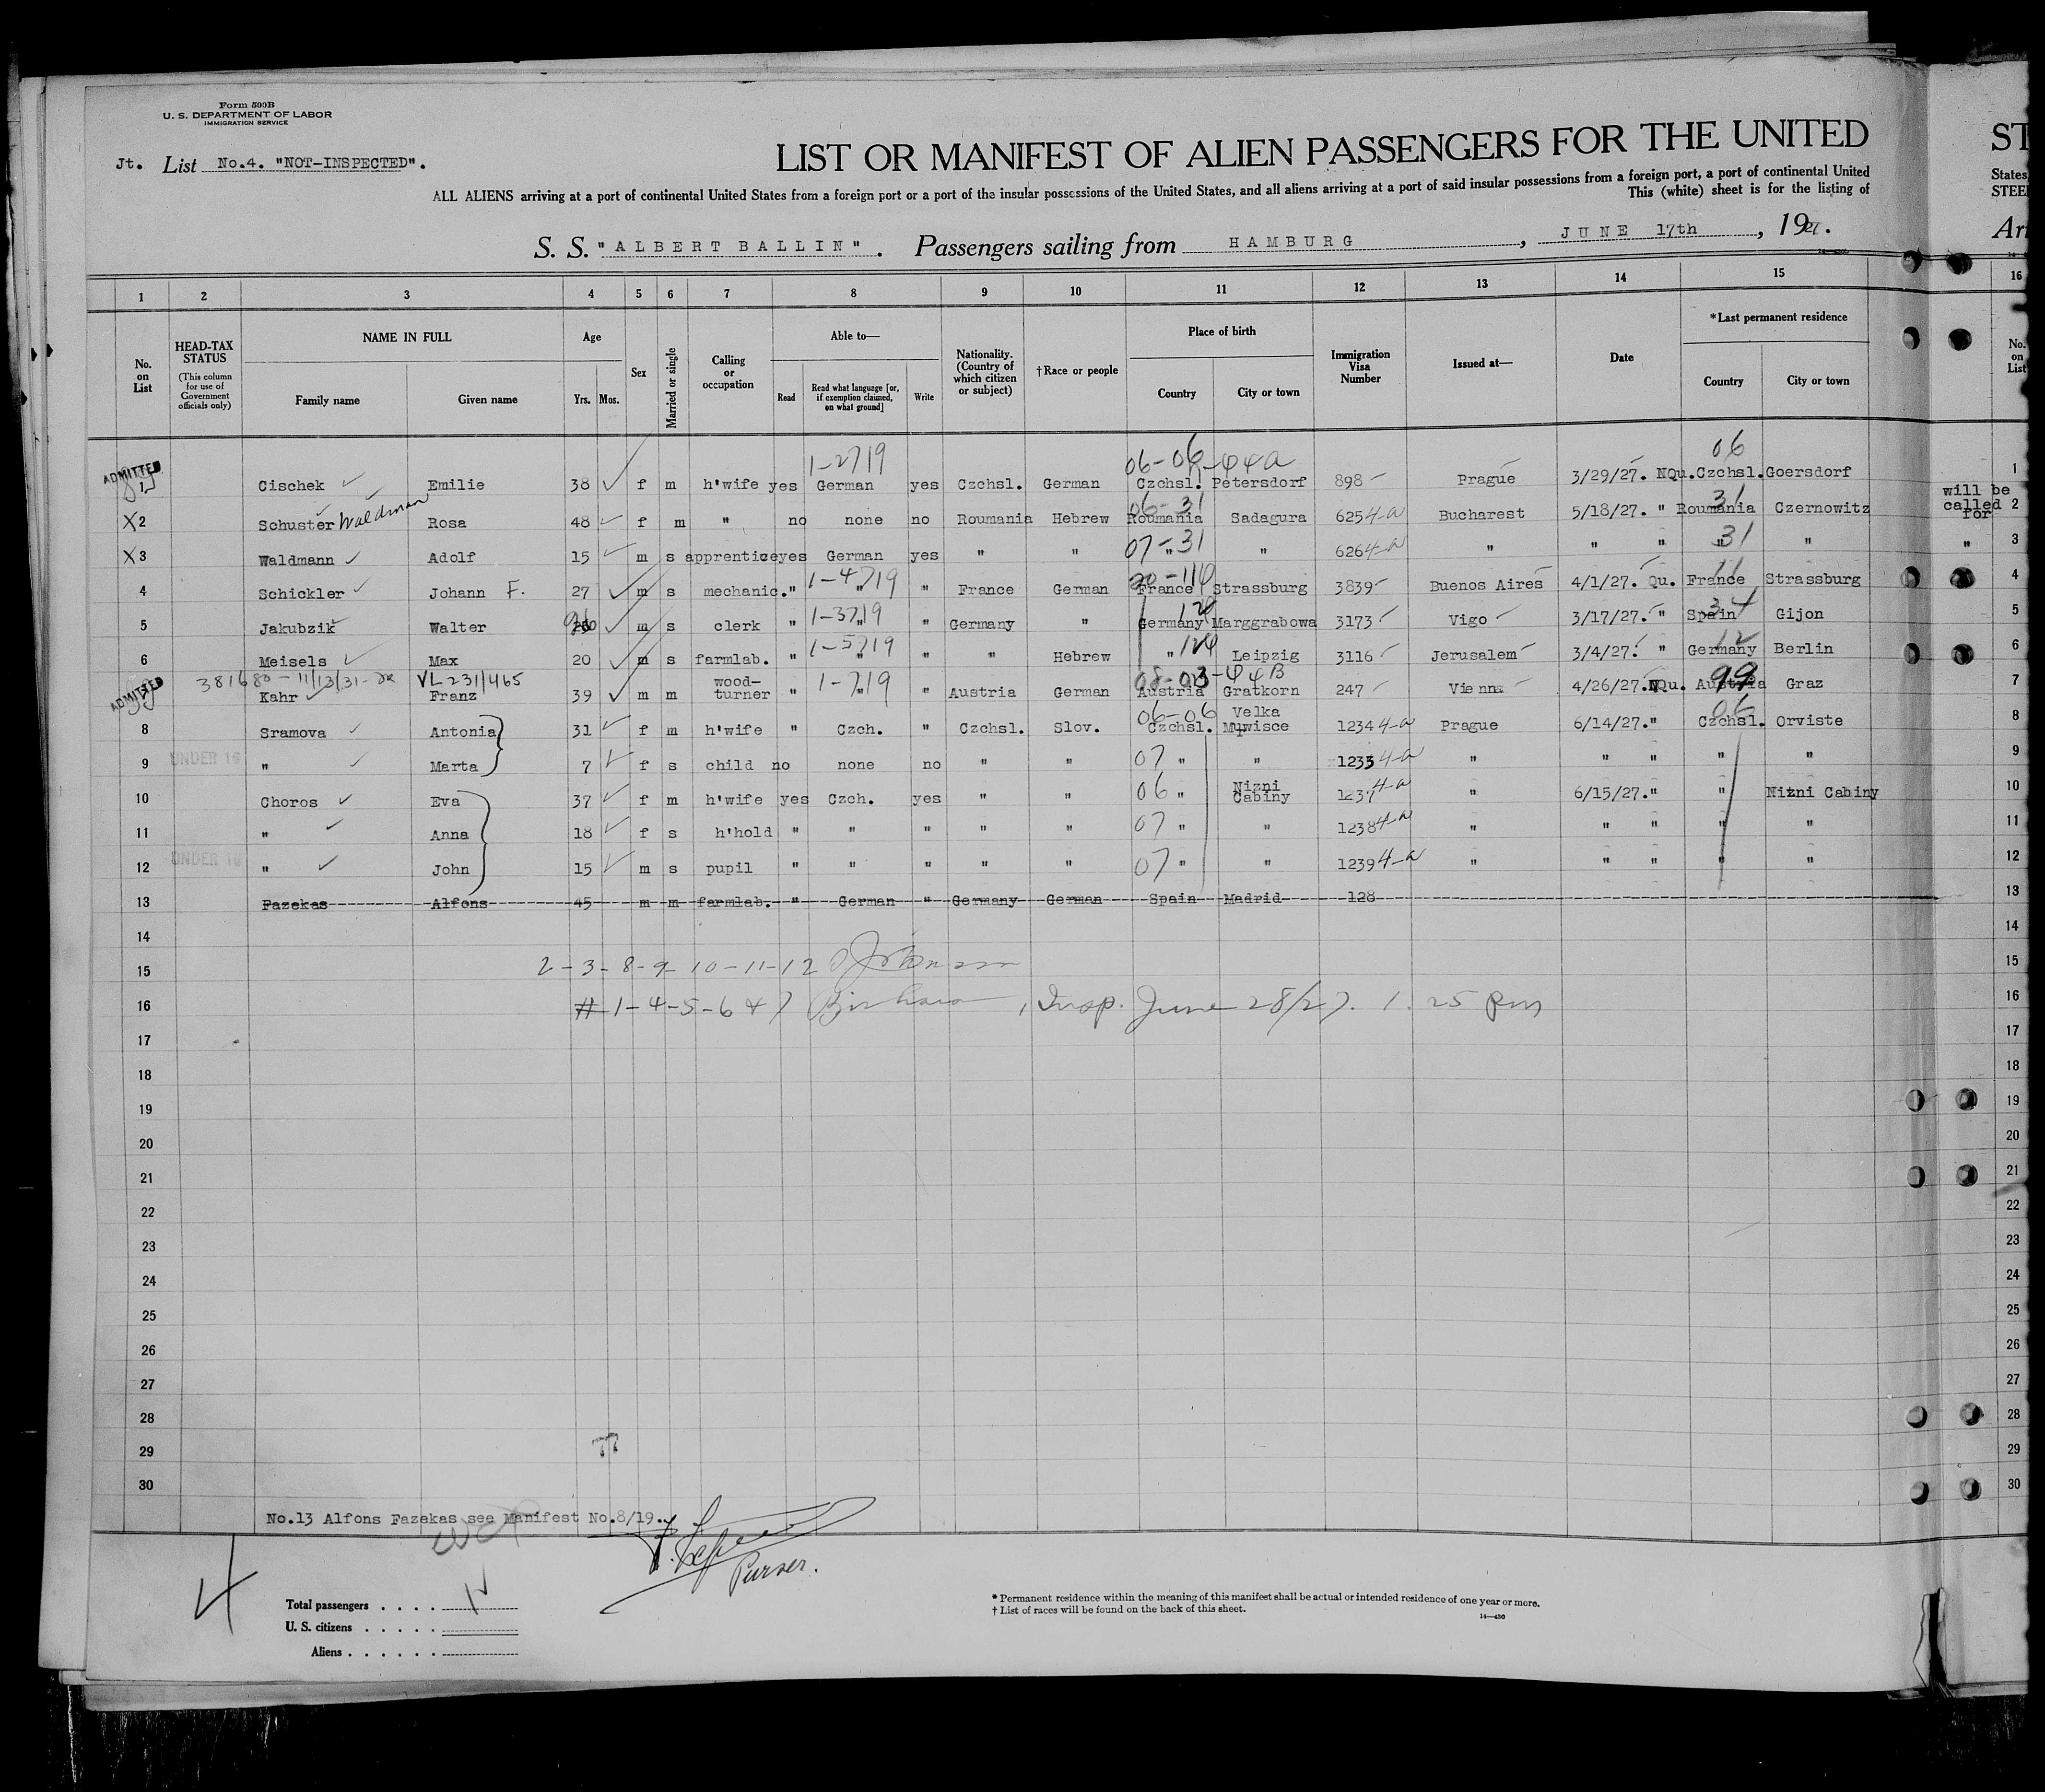 Form 500B
U. S. DEPARTMENT OF LABOR
IMMIGRATION SERVICE
Jt. List No.4. "NOT-INSPECTED".
LIST OR MANIFEST OF ALIEN PASSENGERS FOR THE UNITED
ST
ALL ALIENS arriving at a port of continental United States from a foreign port or a port of the insular possessions of the United States, and all aliens arriving at a port of said insular possessions from a foreign port, a port of continental United
States,
This (white) sheet is for the listing of
STEE
S. S. "ALBERT BALLIN". Passengers sailing from HAMBURG, JUNE 17th, 19
Arr
1 2 3 4 5 6 7 8 9 10 11 12 13 14 15 16
No. on List
HEAD-TAX STATUS (This column for use of Government officials only)
NAME IN FULL Family name Given name
Age Yrs. Mos.
Sex
Married or single
Calling or occupation
Able to— Read Read what language [or, if exemption claimed, on what ground] Write
Nationality. (Country of which citizen or subject)
†Race or people
Place of birth Country City or town
Immigration Visa Number
Issued at—
Date
*Last permanent residence Country City or town
No. on List
1-2719 06-06-44a 06
ADMITTED 1 Cischek Emilie 38 f m h'wife yes German yes Czchsl. German Czchsl. Petersdorf 898 Prague 3/29/27. NQu. Czchsl. Goersdorf 1
06-31 31 will be called for
X2 Schuster Waldman Rosa 48 f m " no none no Roumania Hebrew Roumania Sadagura 625 4-a Bucharest 5/18/27. " Roumania Czernowitz 2
07-31 31
X3 Waldmann Adolf 15 m s apprentice yes German yes " " " " 626 4-a " " " " " " 3
1-4719 11
4 Schickler Johann F. 27 m s mechanic. " " " France German France Strassburg 3839 Buenos Aires 4/1/27. Qu. France Strassburg 4
1-3719 34
5 Jakubzik Walter 26 m s clerk " " " Germany " Germany Marggrabowa 3173 Vigo 3/17/27. " Spain Gijon 5
1-5719 12
6 Meisels Max 20 m s farmlab. " " " " Hebrew " Leipzig 3116 Jerusalem 3/4/27. " Germany Berlin 6
381680 - 11/13/31 VL231/465 1-719 08-03-44B 99
ADMITTED 7 Kahr Franz 39 m m wood-turner " " " Austria German Austria Gratkorn 247 Vienna 4/26/27. NQu. Austria Graz 7
06-06 06
8 Sramova Antonia 31 f m h'wife " Czch. " Czchsl. Slov. Czchsl. Velka 1234 4-a Prague 6/14/27. " Czchsl. Orviste 8
9 UNDER 16 " Marta 7 f s child no none no " " 07 " " 1235 4-a " " " " " 9
10 Choros Eva 37 f m h'wife yes Czch. yes " " 06 " Nizni Cabiny 1237 4-a " 6/15/27. " " Nizni Cabiny 10
11 " Anna 18 f s h'hold " " " " " 07 " " 1238 4-a " " " " " 11
12 UNDER 16 " John 15 m s pupil " " " " " 07 " " 1239 4-a " " " " " 12
13 Fazekas Alfons 45 m m farmlab. " German " Germany German Spain Madrid 128 13
14
15 2-3-8-9-10-11-12 15
16 # 1-4-5-6 & 7 , Insp. June 28/27. 1.25 pm 16
17 17
18 18
19 19
20 20
21 21
22 22
23 23
24 24
25 25
26 26
27 27
28 28
29 29
30 30
No.13 Alfons Fazekas see Manifest No.8/19.
Purser.
4
Total passengers . . . .
U. S. citizens . . . . .
Aliens . . . . . .
* Permanent residence within the meaning of this manifest shall be actual or intended residence of one year or more.
† List of races will be found on the back of this sheet.
14—430